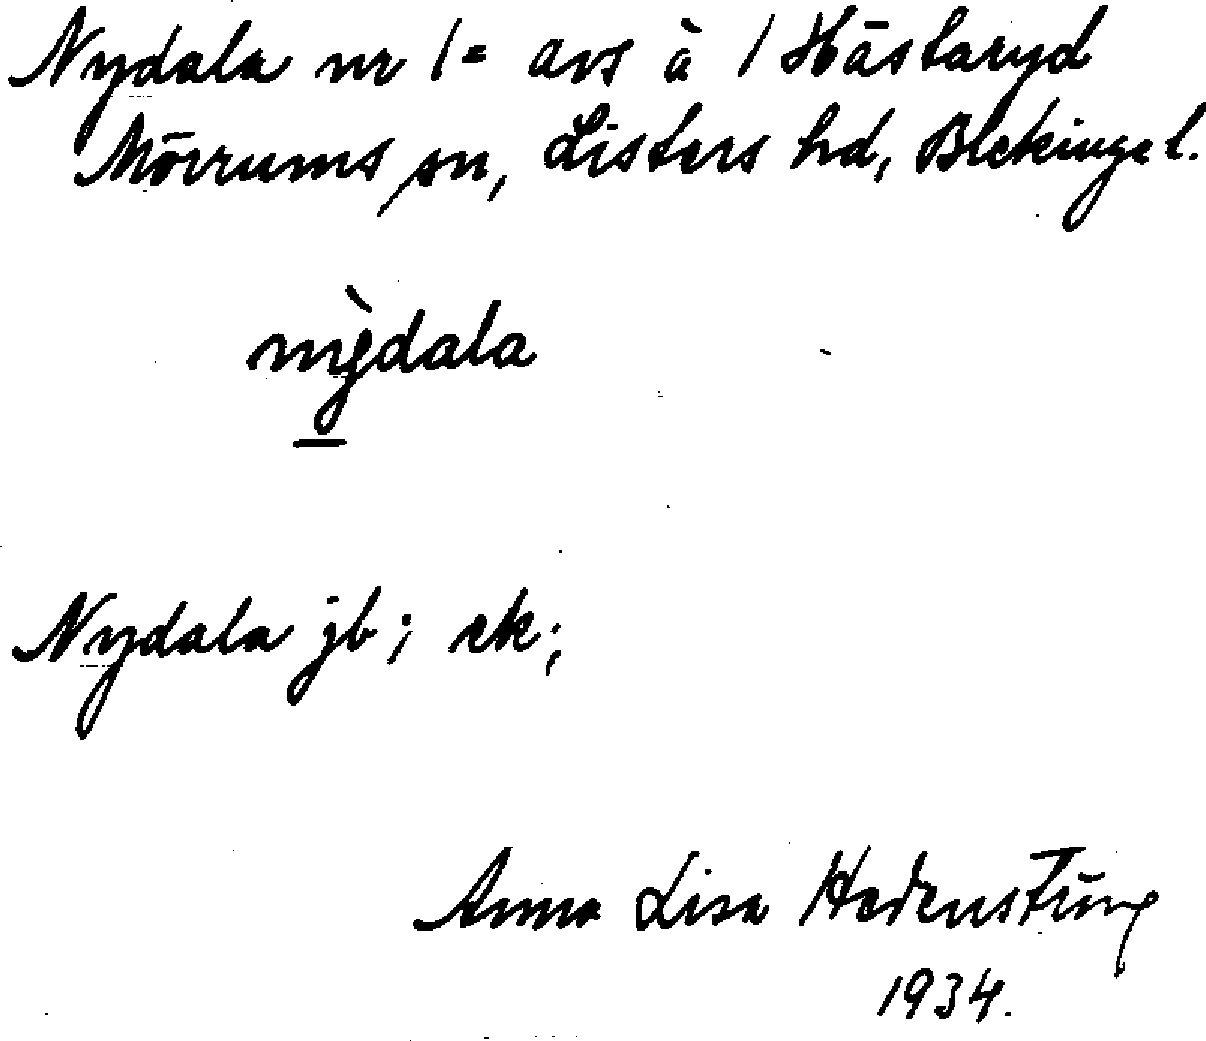 Nydala nr 1= avs å 1 Hästaryd
Mörrums sn, Listers hd, Blekinge l.
nỳdala
Nydala jb; ek;
Anna Lisa Hedenstüng
1934.